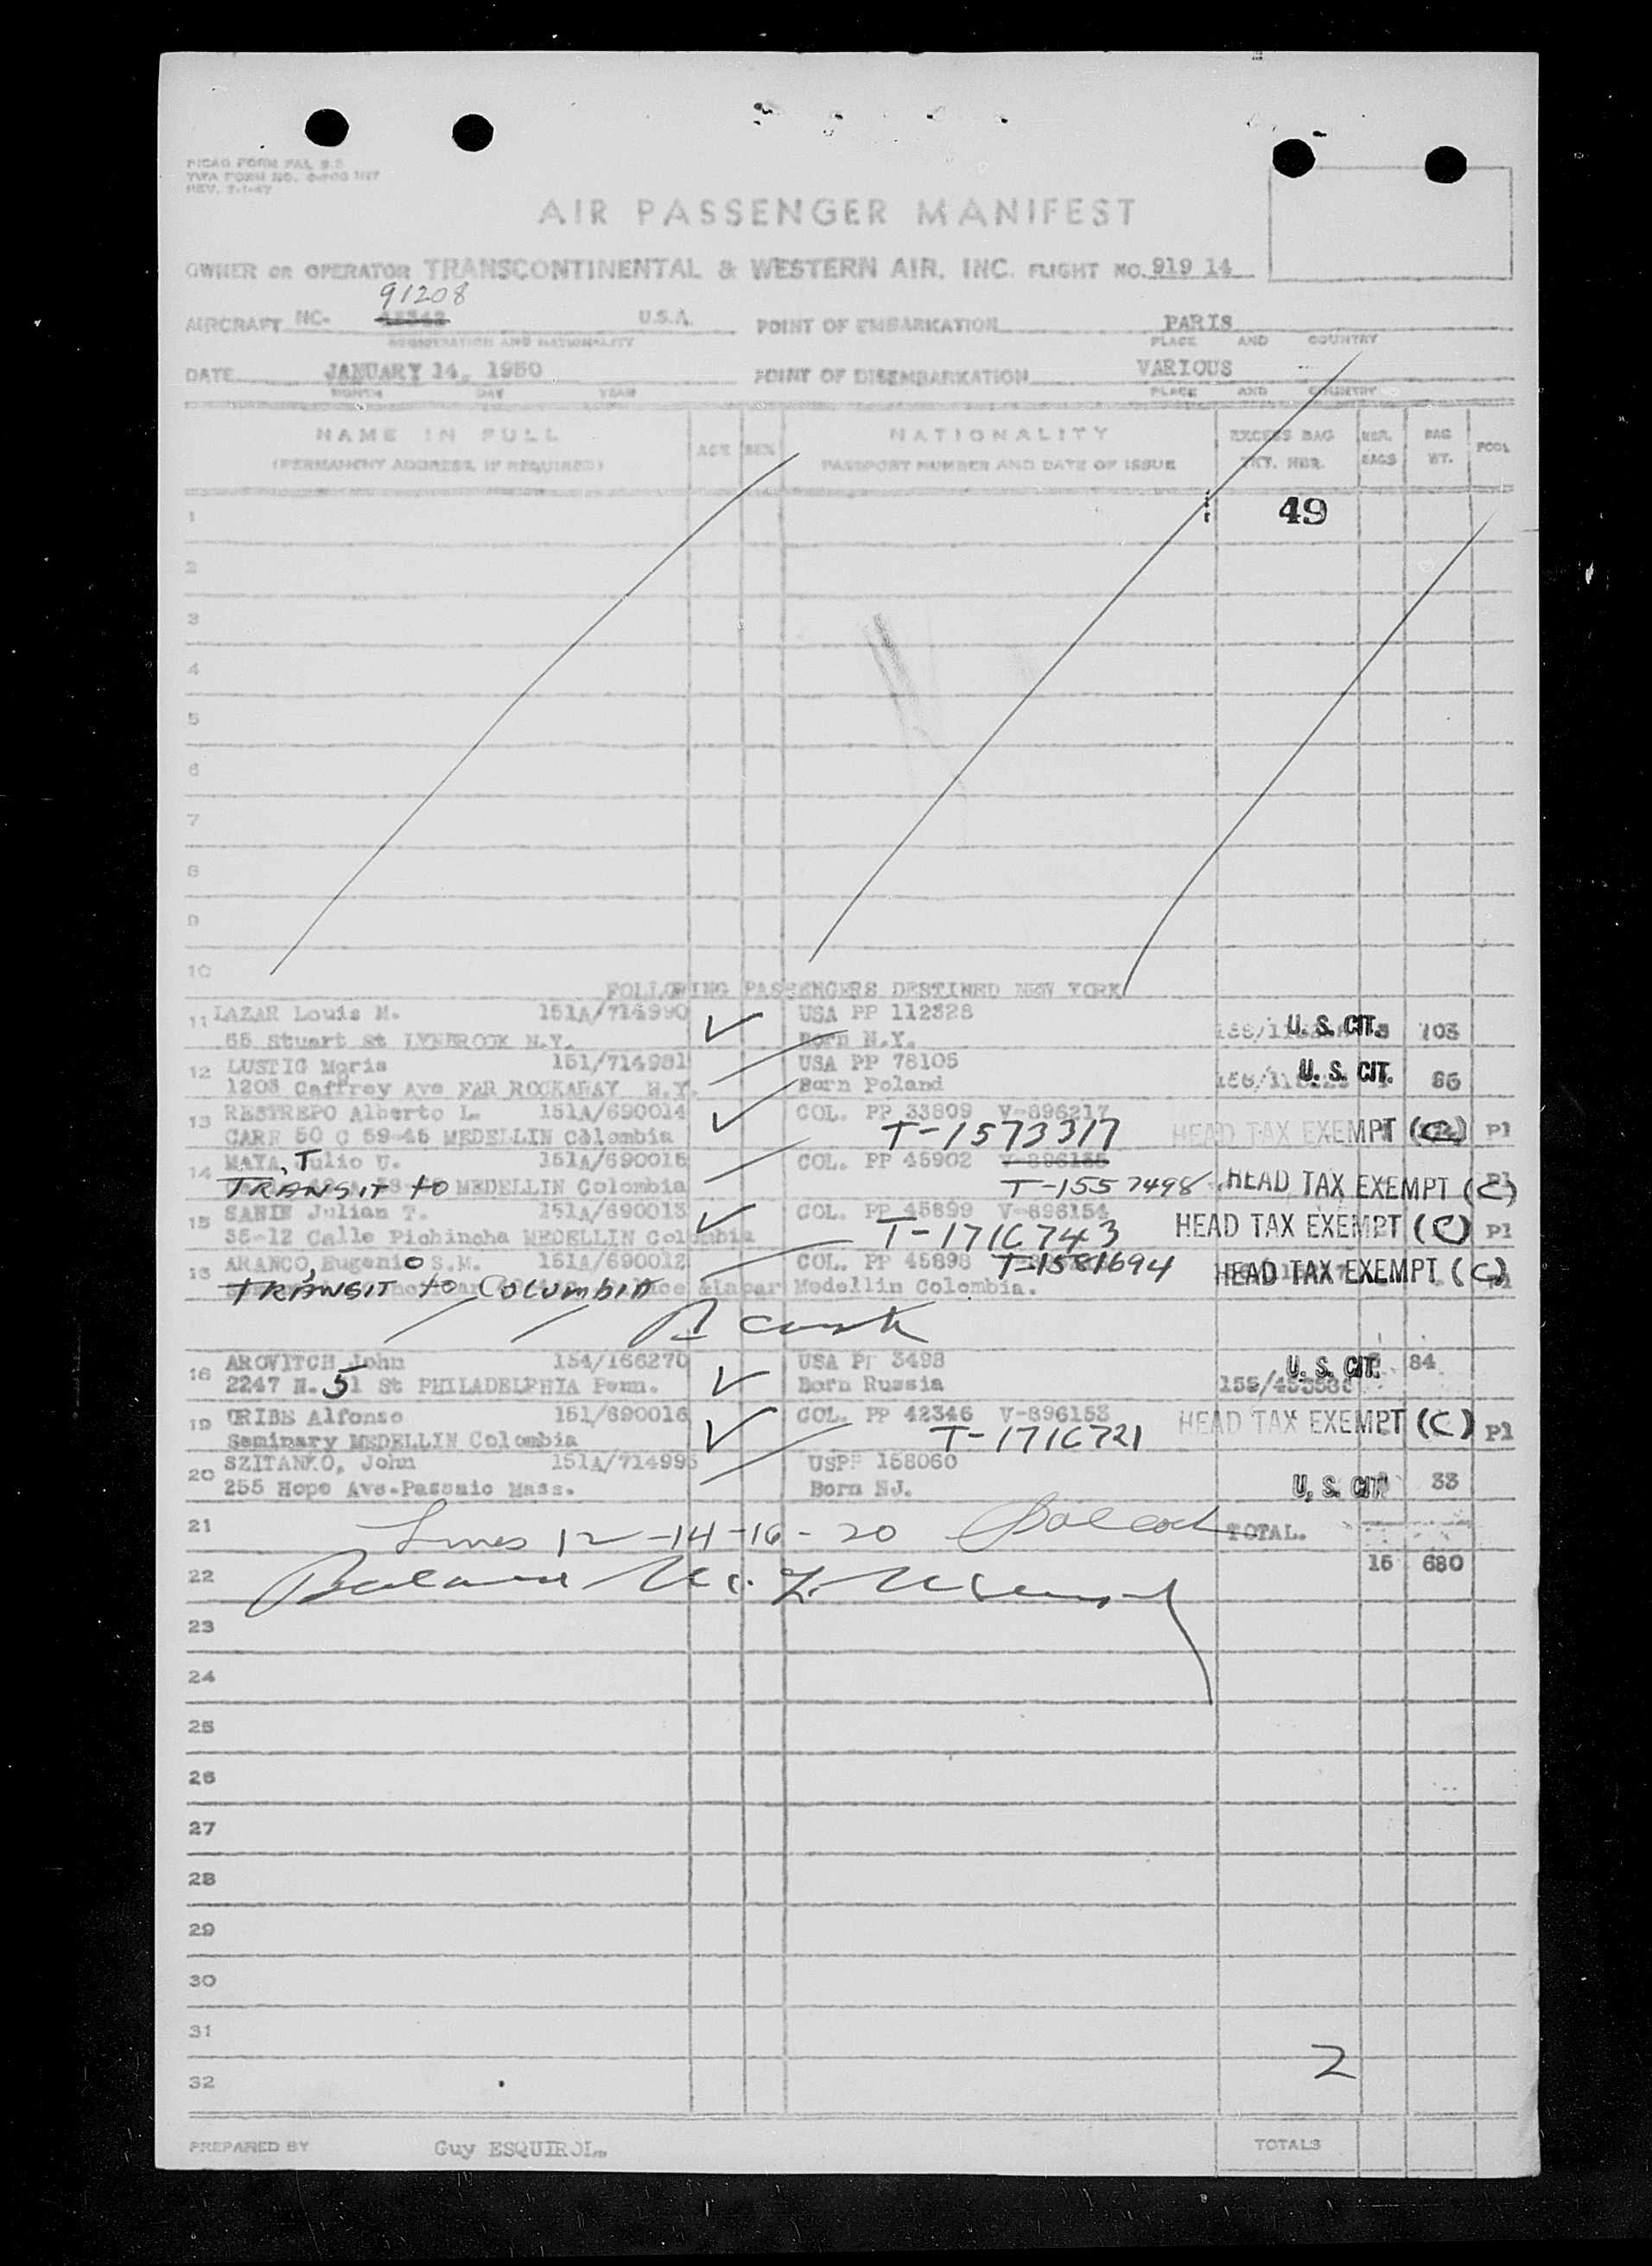 AIR PASSENGER MANIFEST
OWNER OR OPERATOR TRANSCONTINENTAL & WESTERN AIR, INC. FLIGHT NO. 919 14
91208
AIRCRAFT NC- U.S.A. POINT OF EMBARKATION PARIS
REGISTRATION AND NATIONALITY PLACE AND COUNTRY
DATE JANUARY 14, 1950 POINT OF DISEMBARKATION VARIOUS
MONTH DAY YEAR PLACE AND COUNTRY
NAME IN FULL AGE SEX NATIONALITY EXCESS BAG NBR. BAG POOL
(PERMANENT ADDRESS, IF REQUIRED) PASSPORT NUMBER AND DATE OF ISSUE TKT. NBR. BAGS WT.
1 49
2
3
4
5
6
7
8
9
10
FOLLOWING PASSENGERS DESTINED NEW YORK
11 LAZAR Louis M. 151A/714990 USA PP 112328
65 Stuart St LYNBROOK N.Y. Born N.Y. U.S. CIT. 103
12 LUSTIG Moris 151/714981 USA PP 78105
1203 Caffrey Ave FAR ROCKAWAY N.Y. Born Poland U.S. CIT. 86
13 RESTREPO Alberto L. 151A/690014 COL. PP 33809 V-896217
CARR 50 C 59-45 MEDELLIN Colombia T-1573317 HEAD TAX EXEMPT (C) P1
14 MAYA, Julio U. 151A/690015 COL. PP 45902 V-896155
TRANSIT to MEDELLIN Colombia T-1557498 HEAD TAX EXEMPT (C)
15 SANIN Julian T. 151A/690013 COL. PP 45899 V-896154
35-12 Calle Pichincha MEDELLIN Colombia T-1716743 HEAD TAX EXEMPT (C) P1
ARANGO, Eugenio S.M. 151A/690012 COL. PP 45898 T-1581694
TRANSIT to Columbia Medellin Colombia. HEAD TAX EXEMPT (C)
AROVITCH John 154/166270 USA PP 3498
2247 N. 51 St PHILADELPHIA Penn. Born Russia U.S. CIT. 84
19 URIBE Alfonso 151/690016 COL. PP 42346 V-896153
Seminary MEDELLIN Colombia T-1716721 HEAD TAX EXEMPT (C) P1
20 SZITANKO, John 151A/714995 USPP 158060
255 Hope Ave-Passaic Mass. Born NJ. U.S. CIT 33
21 Lines 12-14-16-20 TOTAL.
22 16 680
23
24
25
26
27
28
29
30
31
2
32
PREPARED BY Guy ESQUIROL. TOTALS